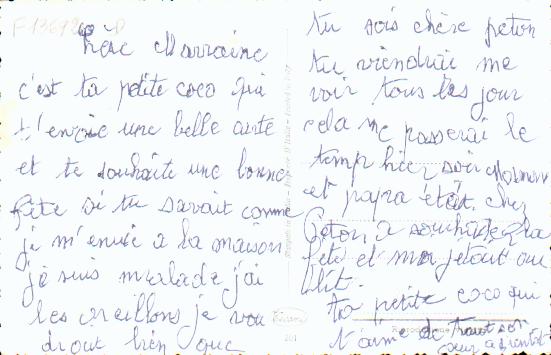 F 13692 D
chère Marraine
c'est ta petite coco qui
t'envoie une belle carte
et te souhaite une bonne
fête si tu savait comme
je m'ennuie a la maison
je suis malade j'ai
les oreillons je vou
drait bien que
tu sois chère peton
tu viendrai me
voir tous les jour
cela me passerai le
temp hier soir Maman
et papa était chez
Peton a souhaite la
fête et moi j'était au
lit.
ta petite coco qui
t'aime de tout son